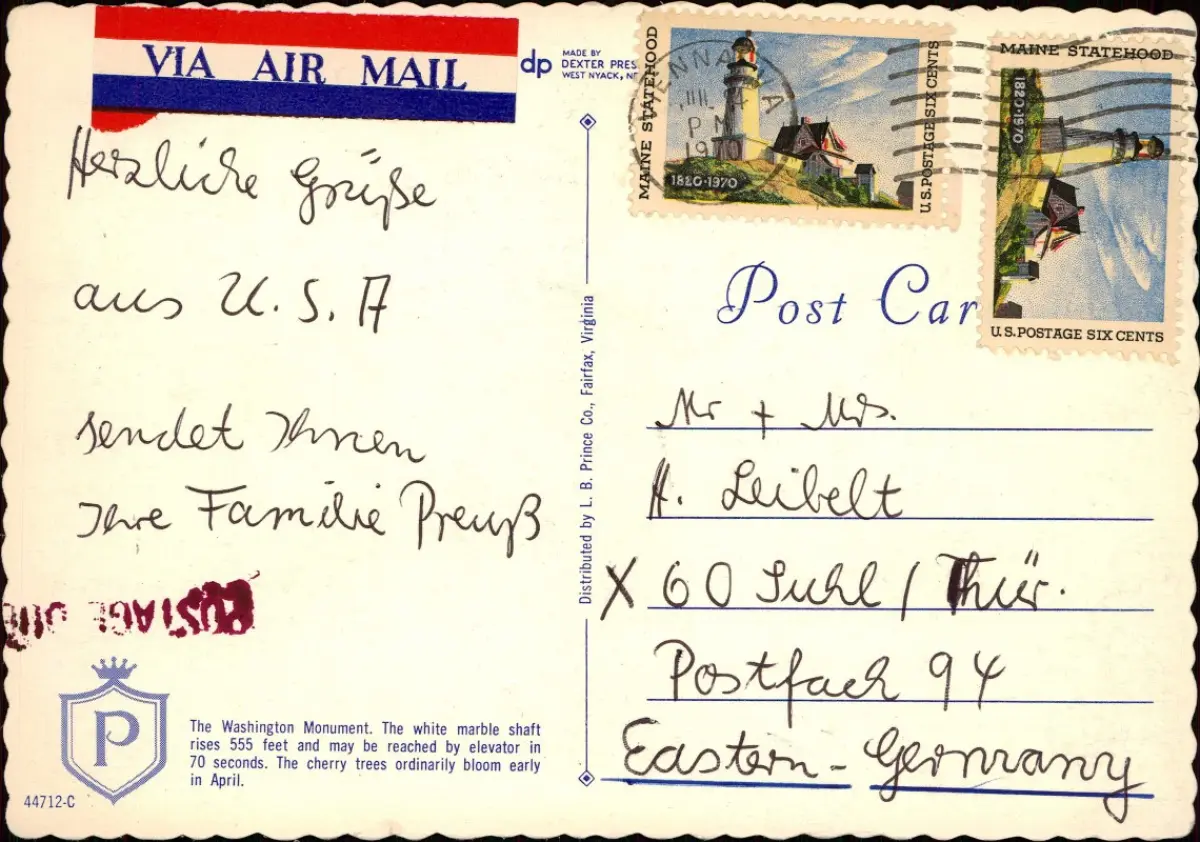 VIA AIR MAIL
dp
MADE BY
DEXTER PRES
WEST NYACK, N
Herzliche Grüße
aus U.S.A
sendet Ihnen
Ihre Familie Preuß
POSTAGE
P
44712-C
The Washington Monument. The white marble shaft
rises 555 feet and may be reached by elevator in
70 seconds. The cherry trees ordinarily bloom early
in April.
Distributed by L. B. Prince Co., Fairfax, Virginia
MAINE STATEHOOD
1820·1970
U.S.POSTAGE SIX CENTS
4
PM
1970
MAINE STATEHOOD
1820·1970
U.S.POSTAGE SIX CENTS
Post Car
Mr + Mrs.
H. Leibelt
X 60 Suhl / Thür.
Postfach 94
Eastern-Germany